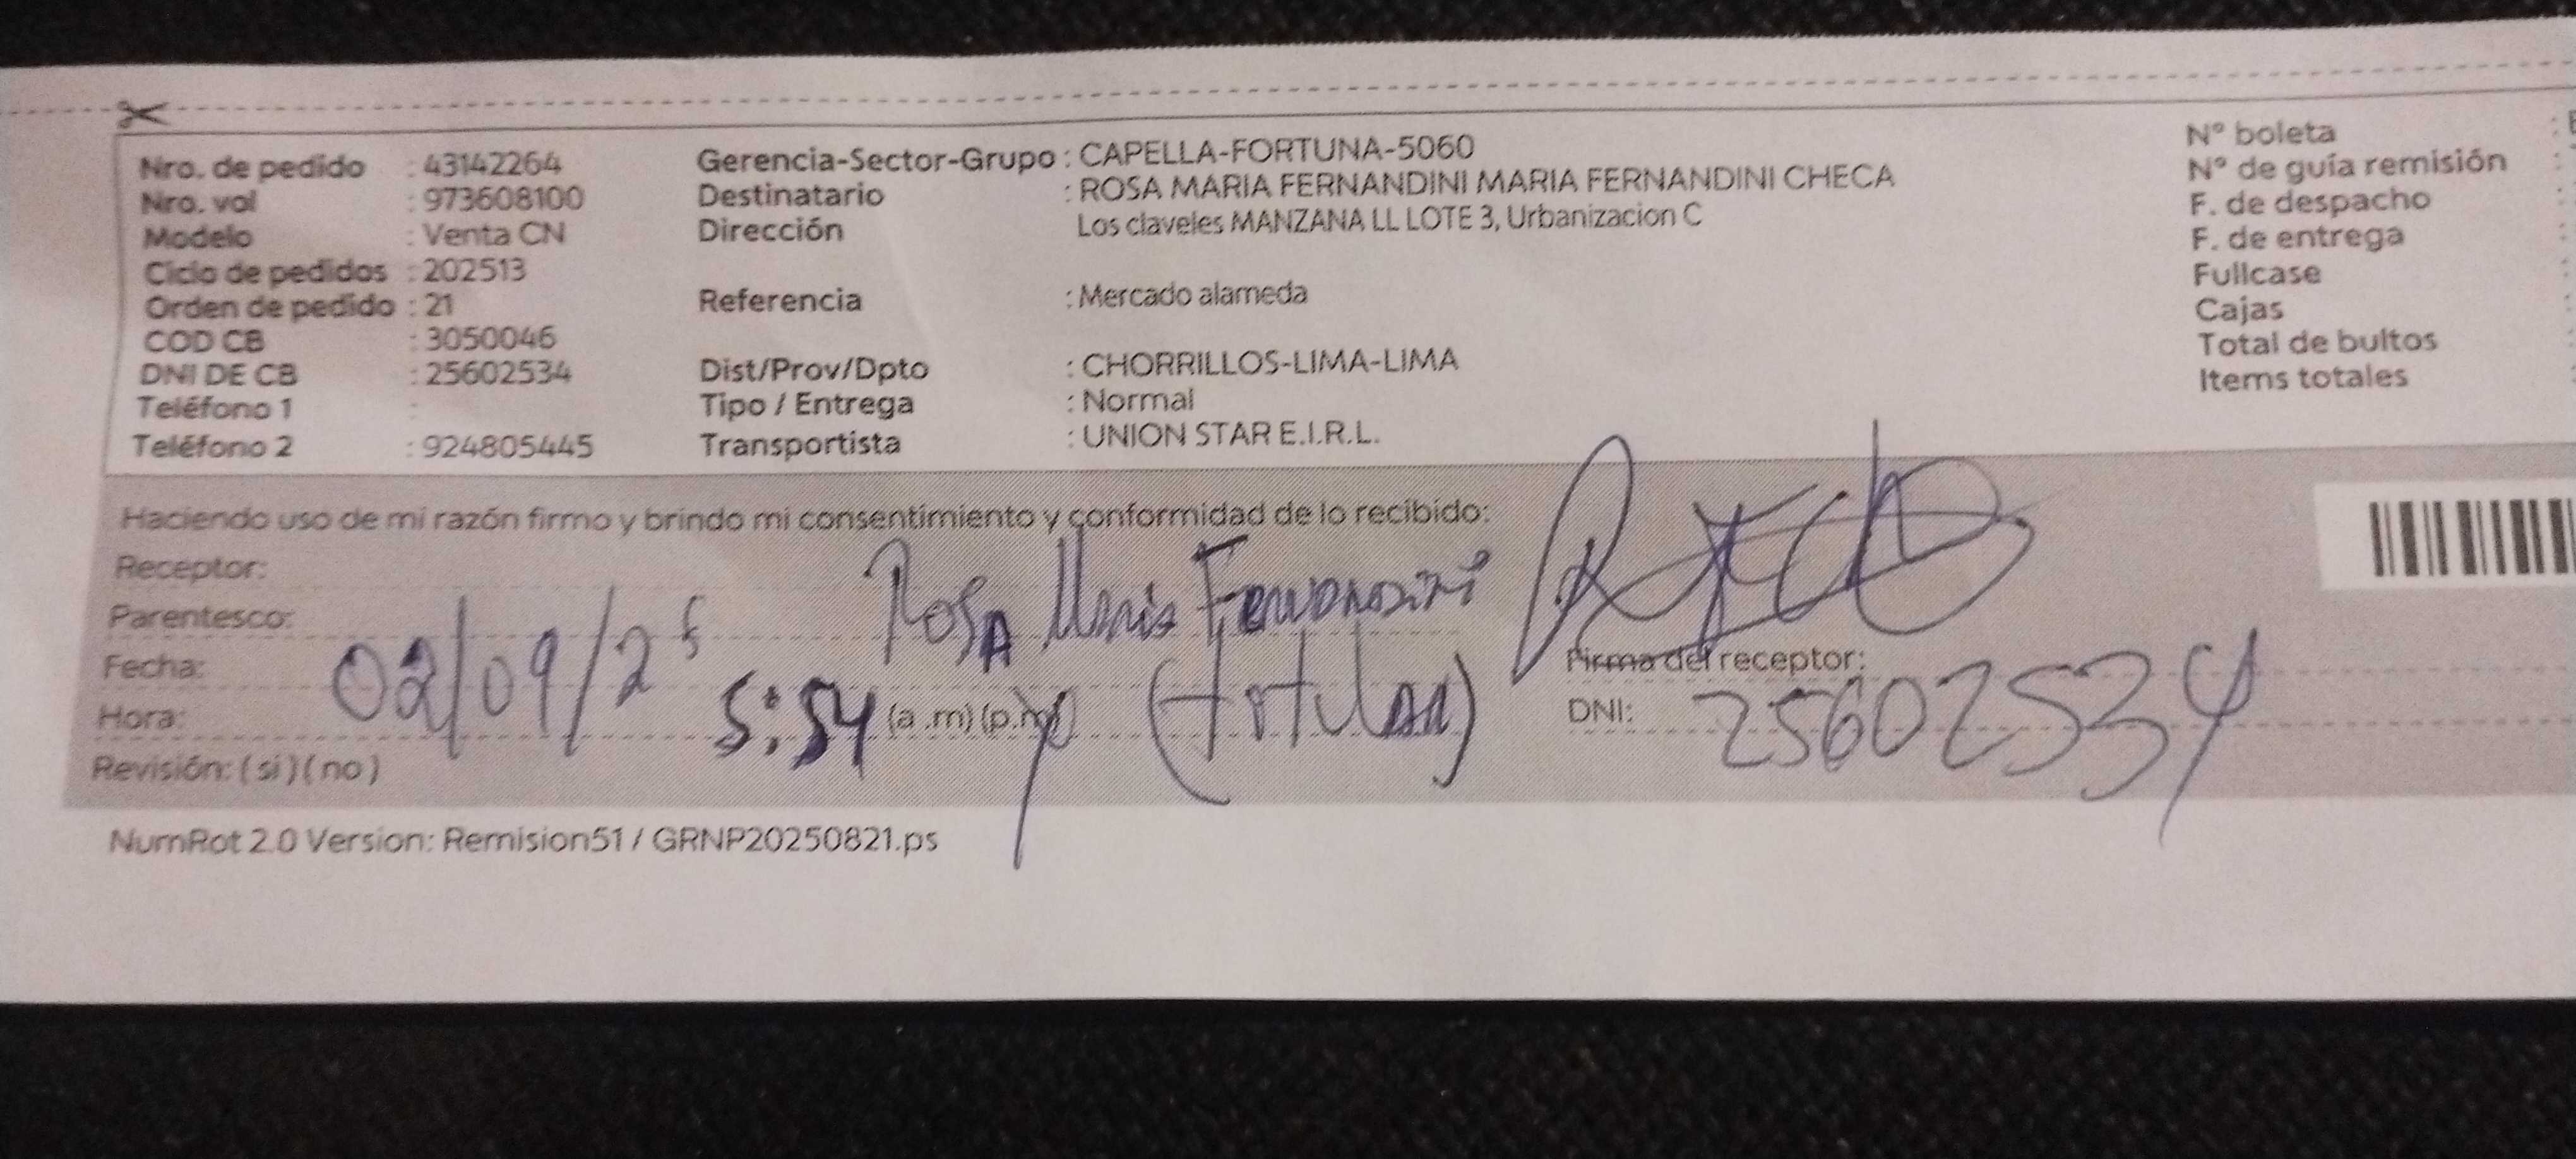 Nro. de pedido : 43142264
Nro. val : 973608100
Modelo : Venta CN
Ciclo de pedidos : 202513
Orden de pedido : 21
COD CB : 3050046
DNI DE CB : 25602534
Teléfono 1 :
Teléfono 2 : 924805445
Gerencia-Sector-Grupo : CAPELLA-FORTUNA-5060
Destinatario : ROSA MARIA FERNANDINI MARIA FERNANDINI CHECA
Dirección Los claveles MANZANA LL LOTE 3, Urbanizacion C
Referencia : Mercado alameda
Dist/Prov/Dpto : CHORRILLOS-LIMA-LIMA
Tipo / Entrega : Normal
Transportista : UNION STAR E.I.R.L.
N° boleta :
N° de guía remisión :
F. de despacho :
F. de entrega :
Fullcase :
Cajas :
Total de bultos :
Items totales :
Haciendo uso de mi razón firmo y brindo mi consentimiento y conformidad de lo recibido:
Receptor: Rosa Maria Fernandini
Parentesco: (titular)
Fecha: 02/09/25
Hora: 5:54 (a.m) (p.m)
Revisión: ( si ) ( no )
Firma del receptor:
DNI: 25602534
NumRot 2.0 Version: Remision51 / GRNP20250821.ps